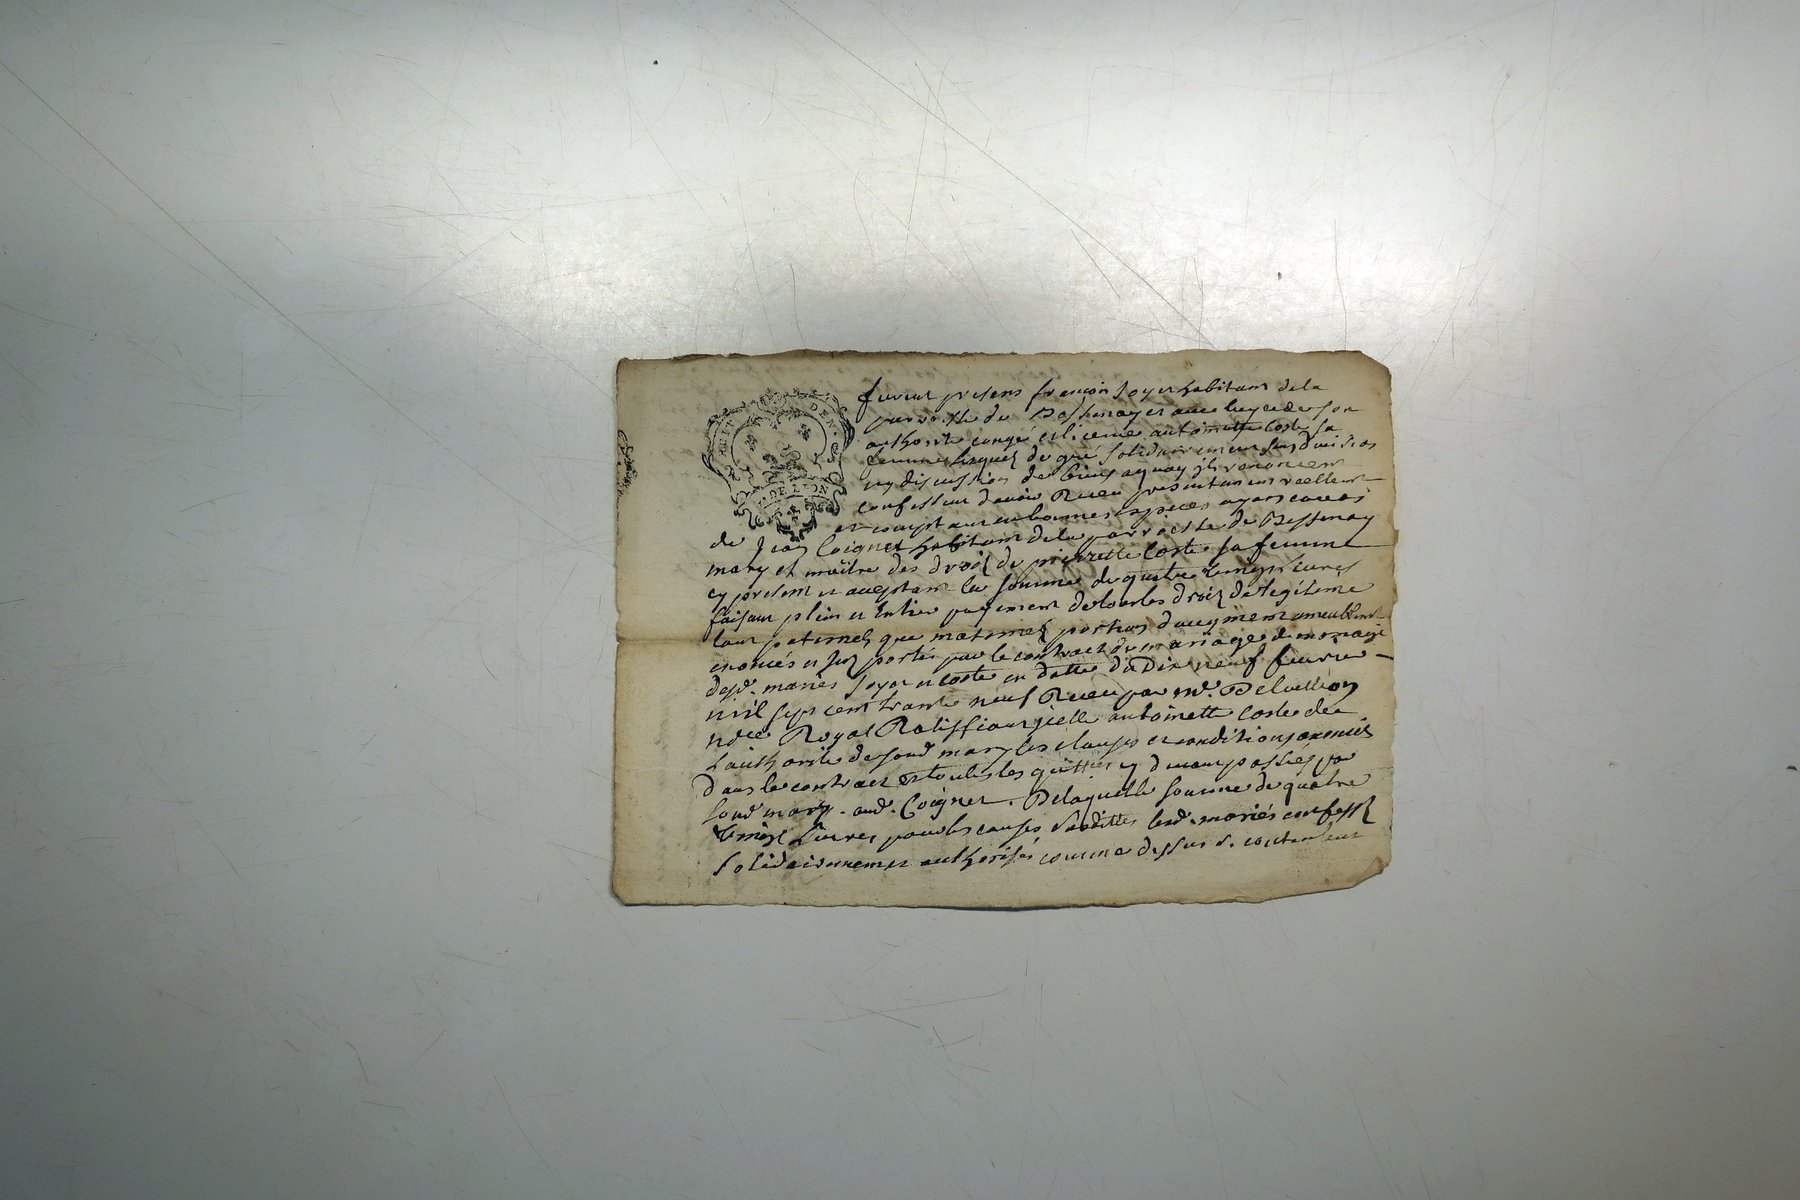 HUIT DEN.
G. DE LION
furent presens françois soyer habitant de la
parroisse de Bessenay et avec luy et de son
authorité congé et licence antoinette Coste sa
femme lesquelz de gré solidairement sans division
ny discussion de biens a quoy ils renoncent
confessent d'avoir Receu presentement reellement
et comptant en bonnes especes ayans cours
de Jean Coignet habitant de la parroisse de Bessenay
mary et maître des droitz de pierrette Coste sa femme
cy present et acceptant la somme de quatre livres
faisant plein et Entier payement de tous les droitz de legitime
tant paternels que maternelz portion d'augment
enoncés et portés par le contract de mariage
desd. mariés soyer et Coste en datte du Dix neuf feuvrier
mil sept cent trante neuf Receu par me.
nore Royal Ratiffiant icelle antoinette Coste de
l'authorité de sond mary les clauses et conditions
dans le contract et toutes les quittes passées par
sond mary. aud. Coignet. De laquelle somme de quatre
livres pour les causes susdittes lesd. mariés confessz
solidairement authorisés comme dessus se contentent